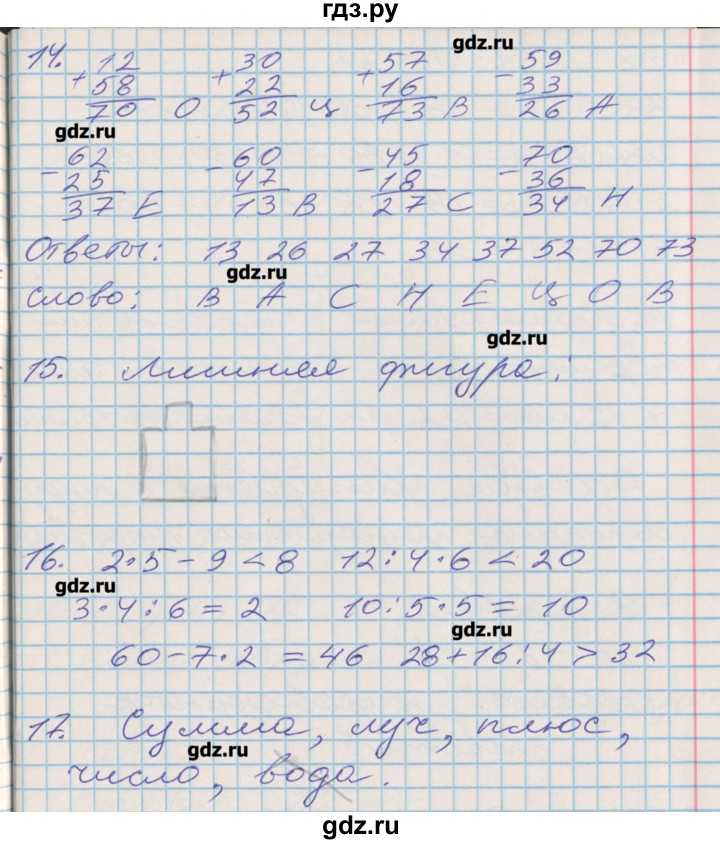 гдз.ру
14. 12 30 57 59 gdz.ru
+ 58 + 22 + 16 - 33
70 О 52 Ц 73 В 26 А
gdz.ru
62 60 45 70
- 25 - 47 - 18 - 36
37 Е 13 В 27 С 34 Н
Ответы: 13 26 27 34 37 52 70 73
gdz.ru
Слово: В А С Н Е Ц О В
gdz.ru
15. Лишняя фигура:
16. 2·5-9<8 12:4·6<20
gdz.ru
3·4:6=2 10:5·5=10
gdz.ru
60-7·2=46 28+16:4>32
17. Сумма, луч, плюс,
gdz.ru
число, вода.
gdz.ru